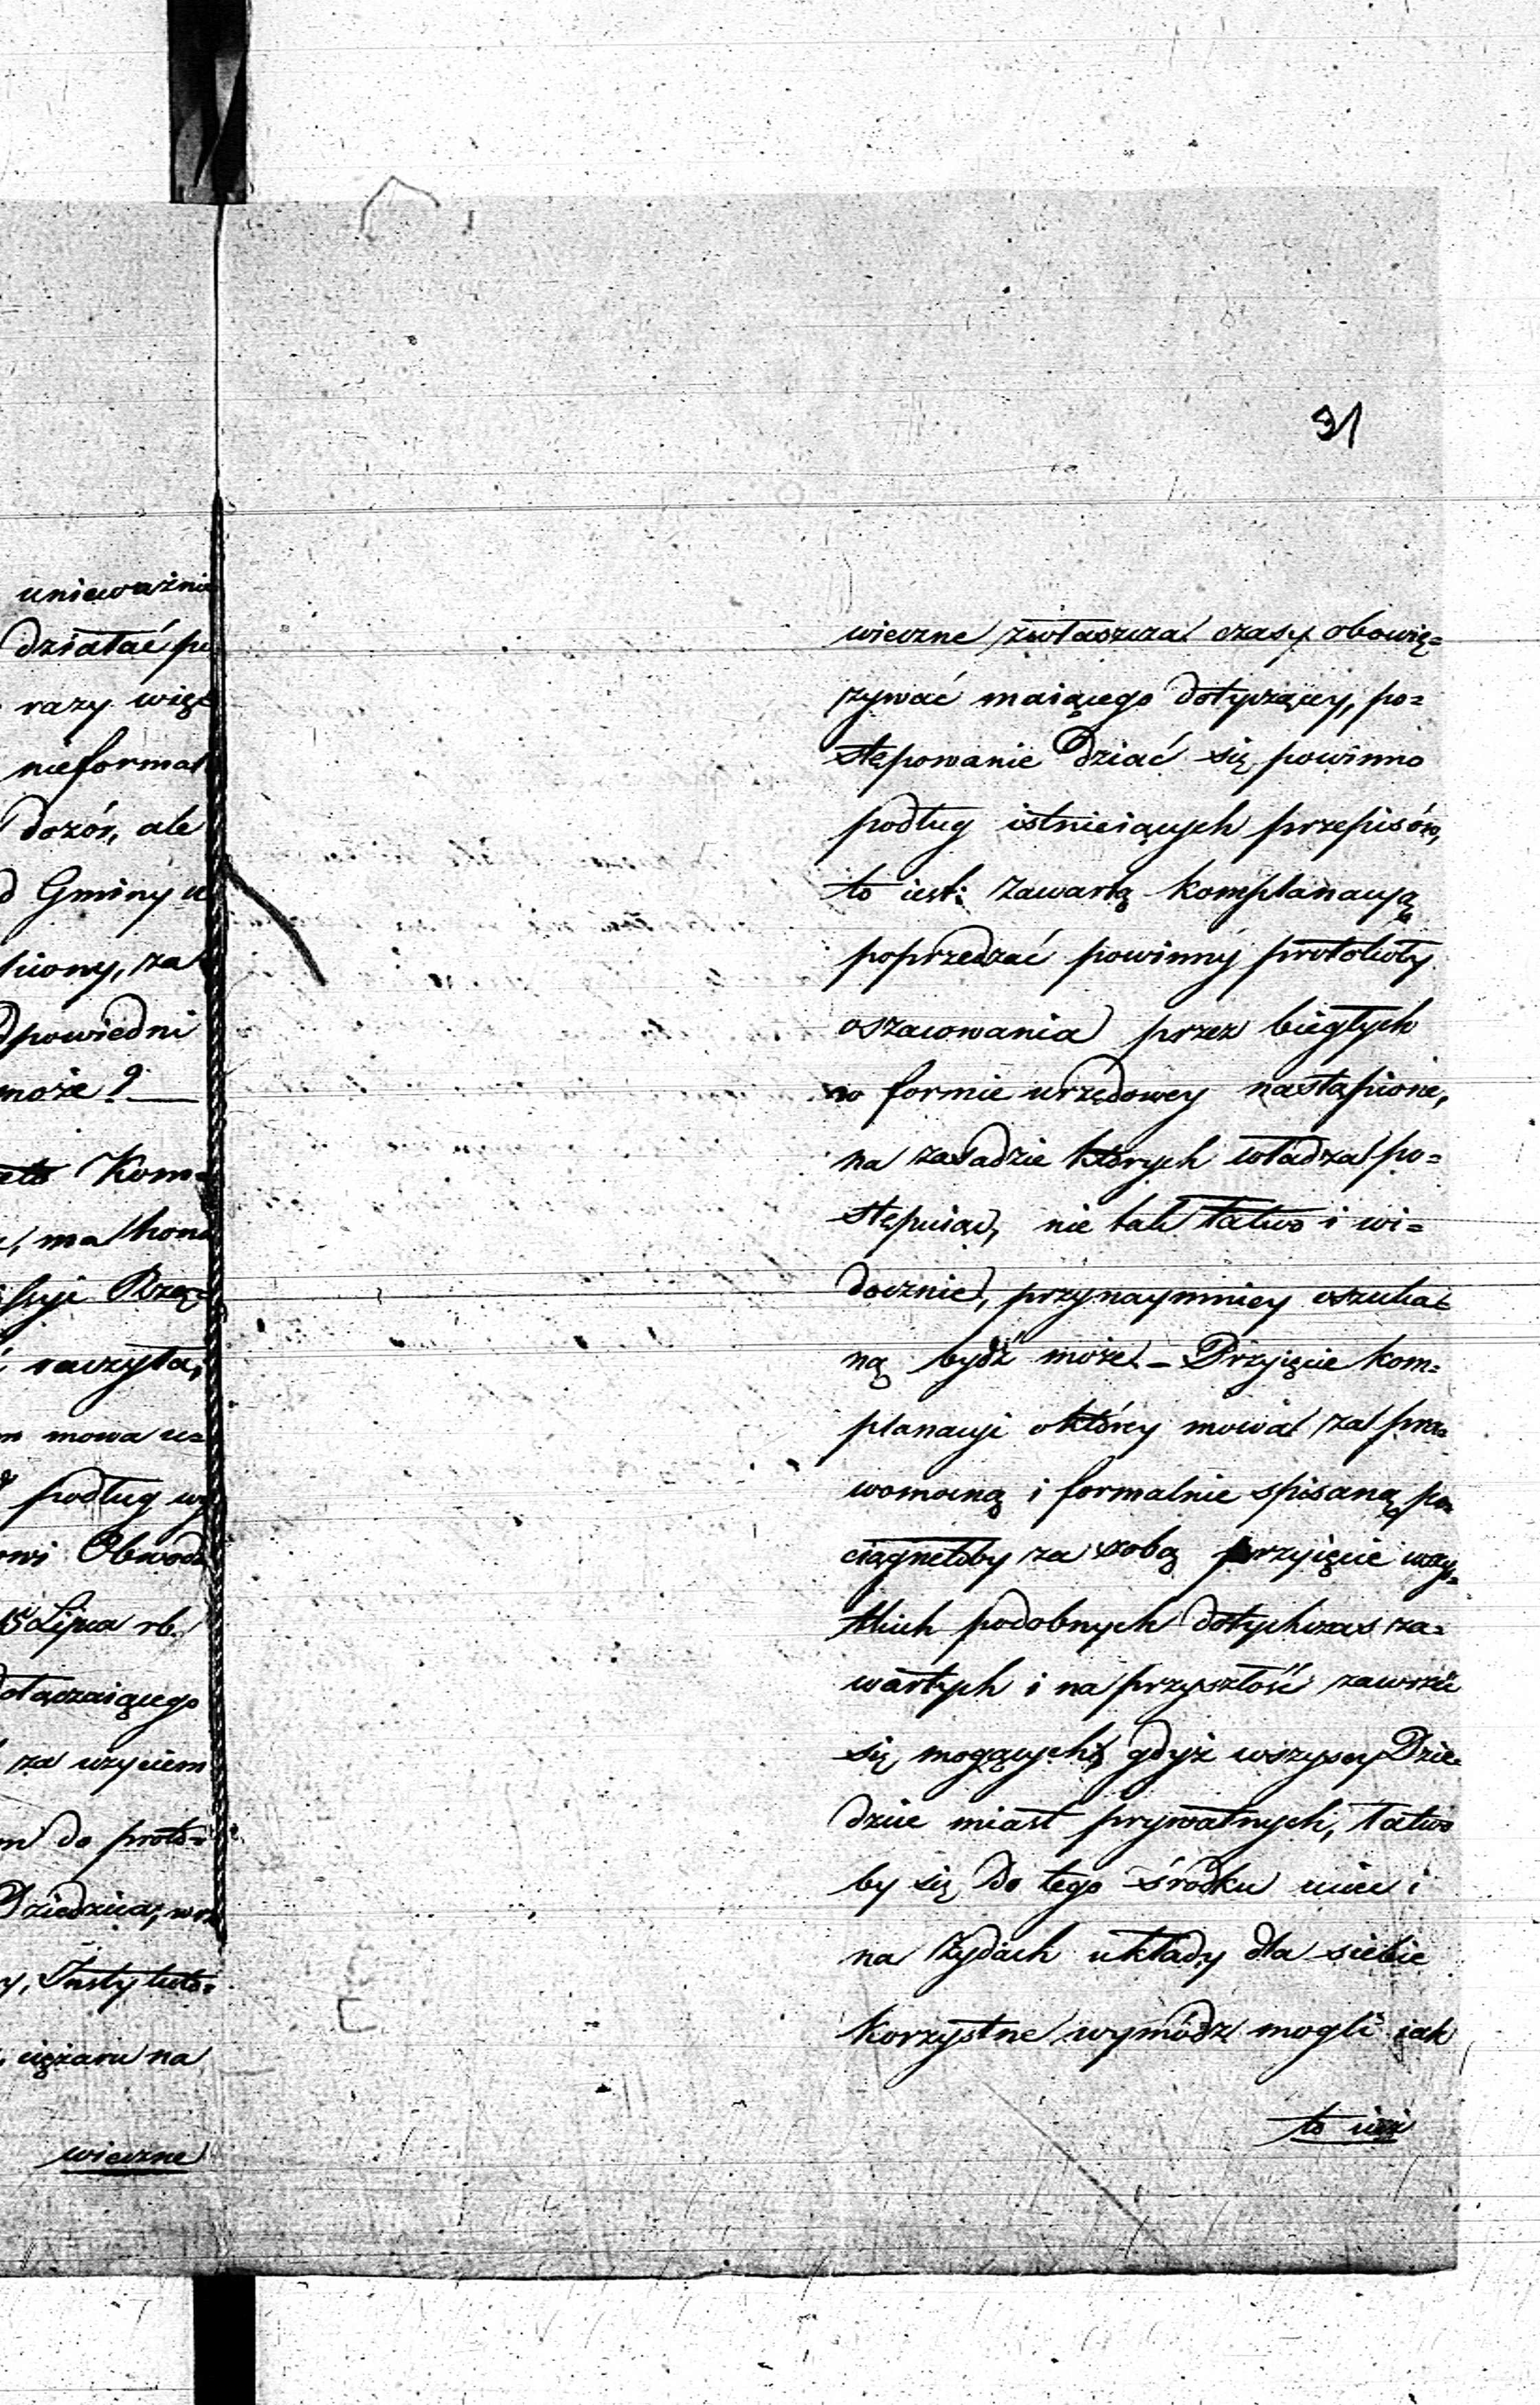 unieważnie
działać po
razy więk
nieformal
dozór, ale
Gminy u
piony, za
dpowiedni
może?
Kom=
, ma hono
Rzą=
raczyła,
mowa u=
podług wy
owi Obwodu
15 Lipca rb.
dołączaiącego
za użyciem
m do proto=
Dziedzica,
y, Instytuto=
, ciężaru na
wieczne
31
wieczne zwłaszcza czasy obowię=
zywać maiącego dotyczący, po=
stępowanie dziać się powinno
podług istnieiących przepisów,
to iest: Zawartą komplanacyą
poprzedzać powinny protokoły
oszacowania przez biegłych
w formie urzędowey nastąpione,
na zasadzie których władza po=
stępuiąc, nie tak łatwo i wi=
docznie, przynaymniey oszuka=
ną bydź może. – Przyięcie kom=
planacyi o którey mowa za pra=
womocną i formalnie spisaną, po=
ciągnełoby za sobą przyięcie wszy=
tkich podobnych dotychczas za=
wartych i na przyszłość zawrzeć
się mogących, gdyż wszyscy Dzie=
dzice miast prywatnych, łatwo
by się do tego środku i
na Żydach układy dla siebie
korzystne wymódz mogli iak
to iuż